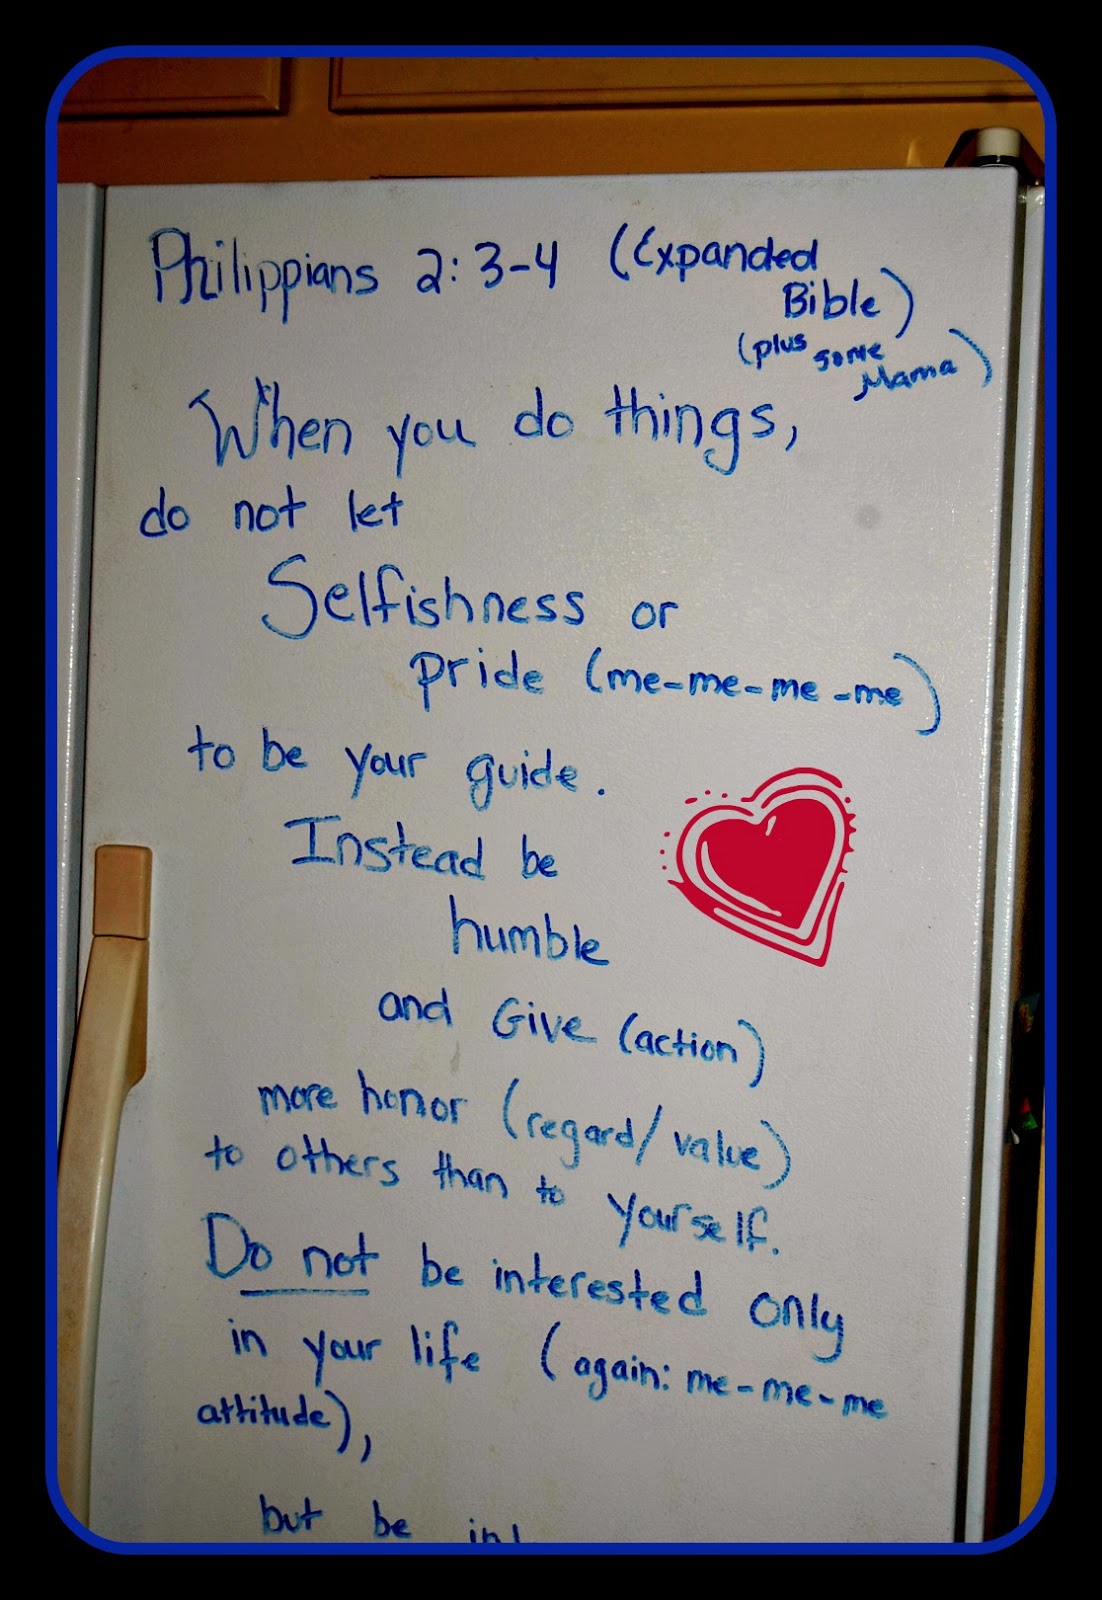 Philippians 2:3-4 (Expanded
Bible)
(plus some
Mama)
When you do things,
do not let
Selfishness or
pride (me-me-me-me)
to be your guide.
Instead be
humble
and Give (action)
more honor (regard/value)
to others than to yourself.
Do not be interested only
in your life (again: me-me-me
attitude),
but be